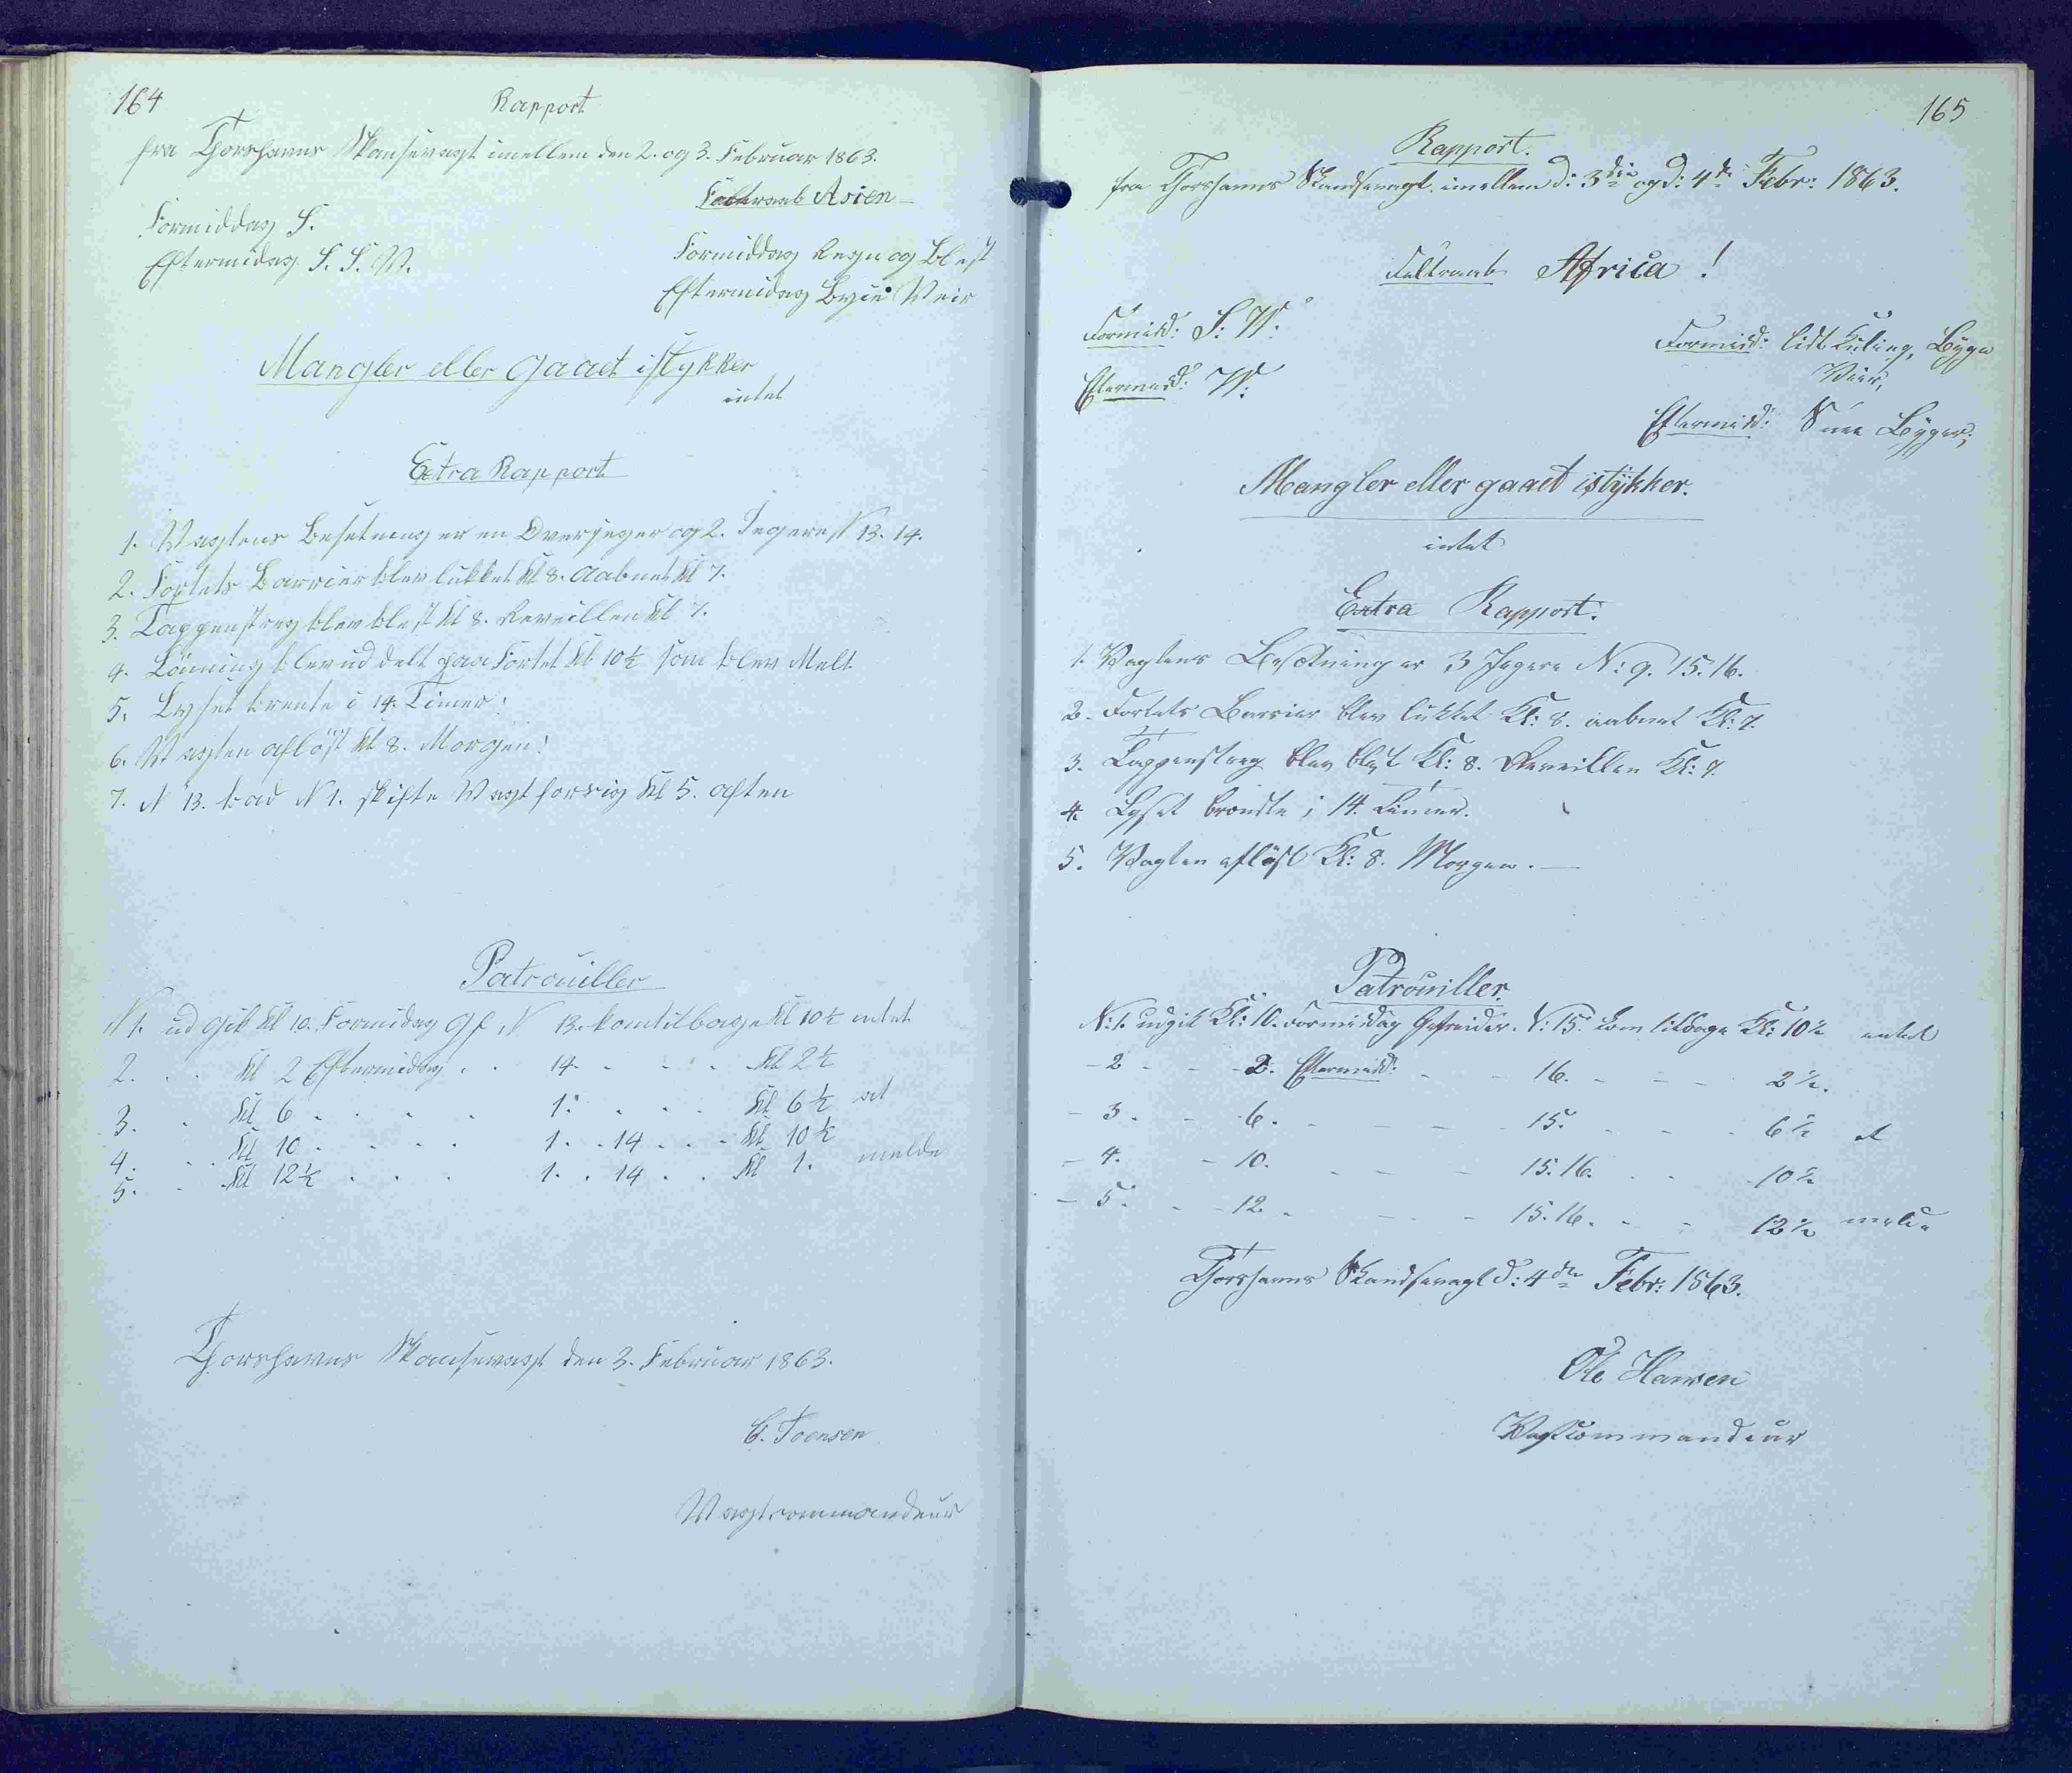 164
Rapport
fra Thorshavns Skansevagt imellem den 2. og 3. Februar 1863.
Feltraab Asien
Formiddag S.
Eftermidag S. S. W.
Formiddag Regn og Blest
Eftermidag Byie Veir
Mangler eller gaaet istykker
intet
Extra Rapport
1. Vagtens Besetning er en Overjeger og 2. Jegere N 13. 14.
2. Fortets Barrier blev lukket Kl 8. aabnet Kl 7.
3. Tappenstreg blev blest Kl 8. Reveillen Kl 7.
4. Lönning blev uddelt paa Fortet Kl 10½ som blev Melt
5. Lyset brente i 14. Timer!
6. Vagten aflöst Kl 8. Morgen!
7. N 13. bad N 1. skifte Vagt for sig Kl 5. aften
Patrouiller
N 1. ud gik Kl 10. Formidag Gf N 13. kom tilbage Kl 10½ intet
2. . . Kl 2 Eftermidag . . 14. . . . Kl 2½
3. . Kl 6 . . . . 1. . . . Kl 6½ at
4. . . Kl 10 . . . . 1. . 14 . . . Kl 10½
5. . Kl 12½ . . . 1. . 14 . . Kl 1. melde
Thorshavns Skansevagt den 3. Februar 1863.
C. Joensen
Vagtcommandeur
165
Rapport.
fra Thorshavns Skandsevagt imellem d: 3die og d: 4de Febr: 1863.
Feltraab Africa!
Formidd: S: W:
Eftermidd: W:
Formidd: lidt Kuling, Byge
Veir,
Eftermidd: Snee Byger;
Mangler eller gaaet istykker.
intet
Extra Rapport:
1. Vagtens Besætning er 3 Jegere N: 9. 15. 16.
2. Fortets Barrier blev lukket Kl: 8. aabnet Kl: 7.
3. Tappenstreg blev blest Kl: 8. Reveillen Kl: 7.
4. Lyset brændte i 14. Timer.
5. Vagten aflöst Kl: 8. Morgen. —
Patrouiller.
N: 1. udgik Kl: 10. Formiddag Gefreider. N: 15. kom tilbage Kl: 10½ intet
- 2 - - 2. Eftermidd: - - 16. - - - 2½.
- 3. - - 6. - - - - 15. - - - 6½ at
- 4. - 10. - - - 15. 16. - - 10½
- 5. - - 12. - - - - 15. 16. - - 12½ melde
Thorshavns Skandsevagt d: 4de Febr: 1863.
Ole Hansen
Vagtcommandeur